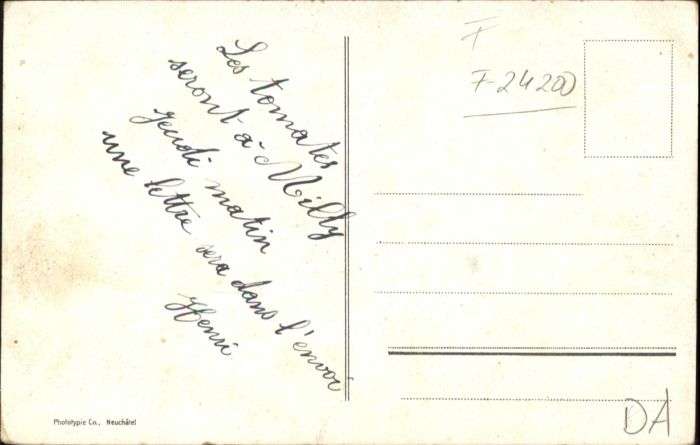 Les tomates
seront à Milly
Jeudi matin
une lettre sera dans l'envoi
Henri
F
F-24200
DA
Phototypie Co., Neuchâtel